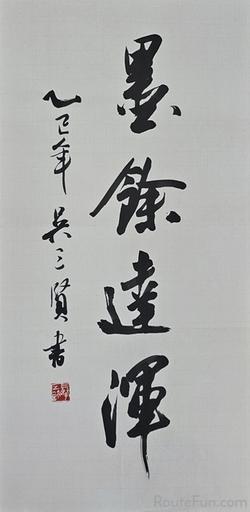 墨餘達渾
乙巳年 吴三賢書
RouteFun.com